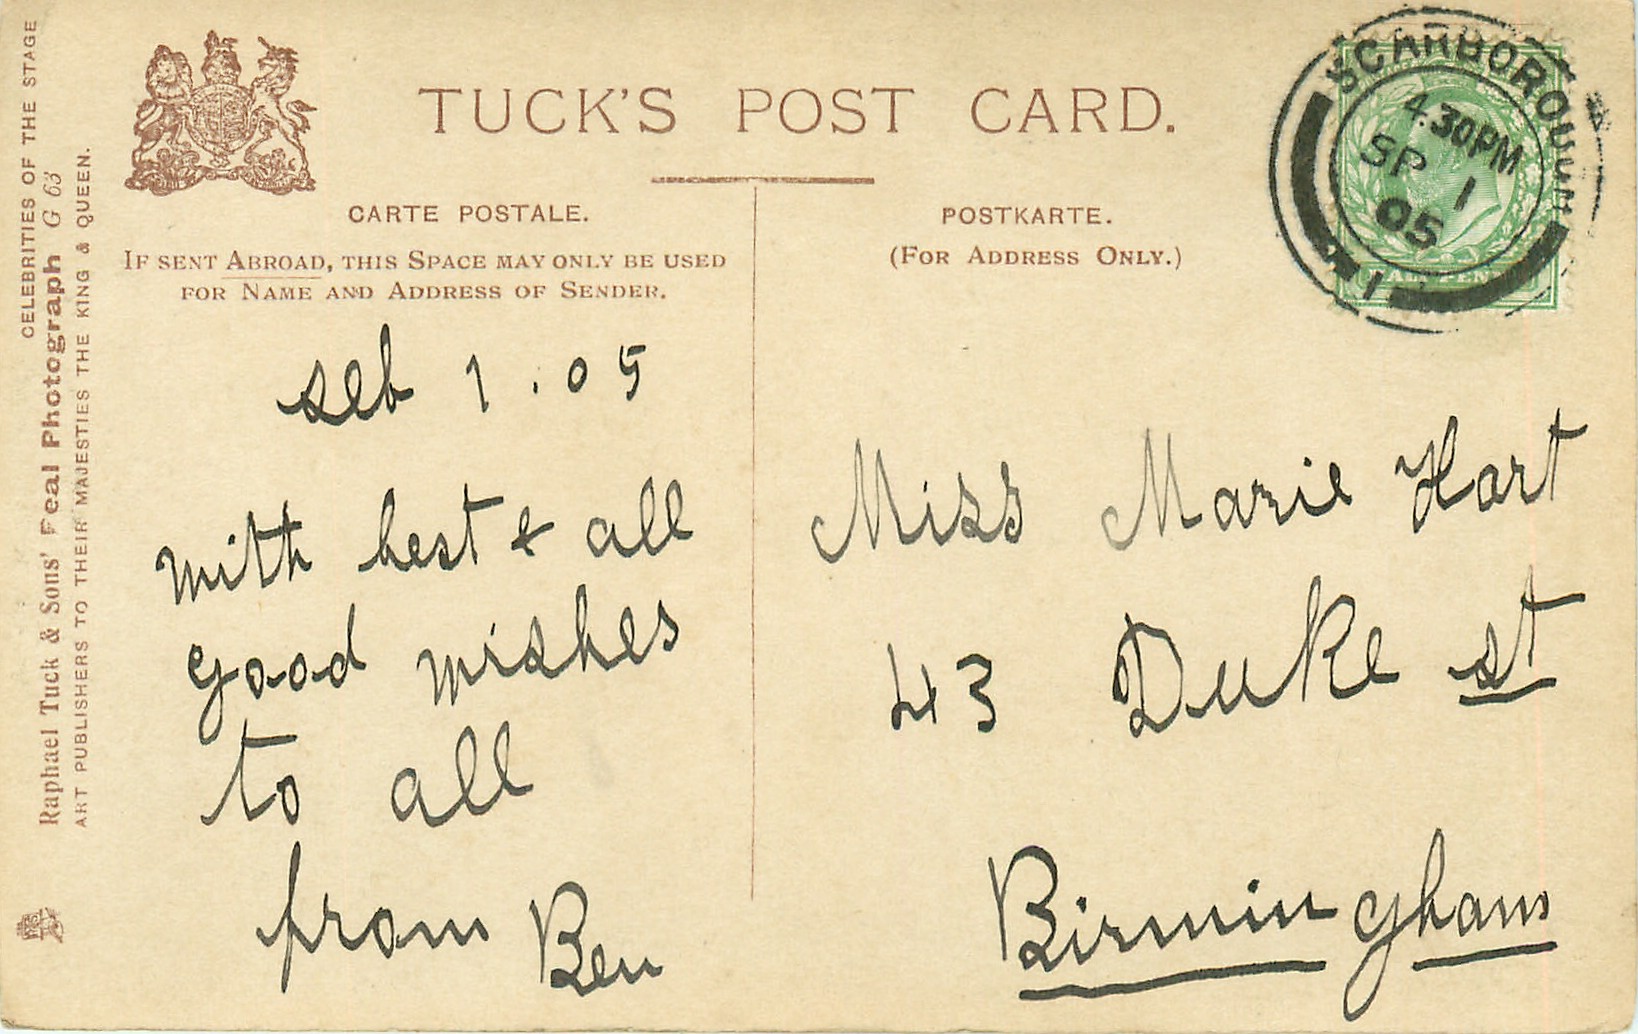 CELEBRITIES OF THE STAGE
Raphael Tuck & Sons' Real Photograph G 63
ART PUBLISHERS TO THEIR MAJESTIES THE KING & QUEEN.
TUCK'S POST CARD.
CARTE POSTALE.
IF SENT ABROAD, THIS SPACE MAY ONLY BE USED
FOR NAME AND ADDRESS OF SENDER.
POSTKARTE.
(FOR ADDRESS ONLY.)
SCARBOROUGH
4.30PM
SP 1
05
1
seb 1.05
with best & all
good wishes
to all
from Ben
Miss Marie Hart
43 Duke st
Birmingham